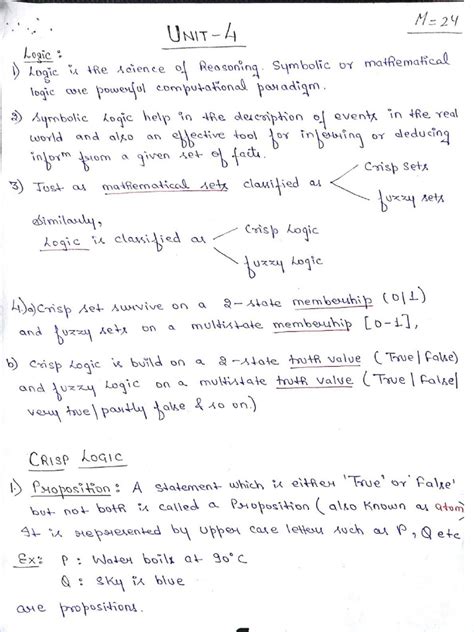 M=24
UNIT-4
Logic :
1) Logic is the science of Reasoning. Symbolic or mathematical
logic are powerful computational paradigm.
2) Symbolic Logic help in the description of events in the real
world and also an effective tool for inferring or deducing
informⁿ from a given set of facts.
3) Just as mathematical sets classified as
Crisp Sets
fuzzy sets
Similarly,
Logic is classified as
Crisp Logic
fuzzy Logic
4)a) Crisp set survive on a 2-state membership (0/1)
and fuzzy sets on a multistate membership [0-1],
b) Crisp Logic is build on a 2-state truth value (True/False)
and fuzzy Logic on a multistate truth value (True/False/
very true/partly false & so on.)
CRISP LOGIC
1.) Proposition: A statement which is either 'True' or 'False'
but not both is called a Proposition (also known as atom)
It is represented by upper case letters such as P, Q etc
Ex: P : Water boils at 90°C
Q : Sky is blue
are propositions.